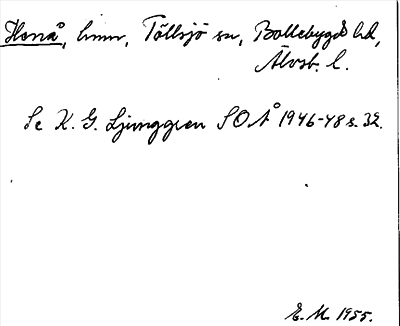 Henå, hmn, Töllsjö sn, Bollebygds hd,
Älvsb. l.
Se K. G. Ljunggren SOÅ 1946-48 s. 32.
E. M. 1955.